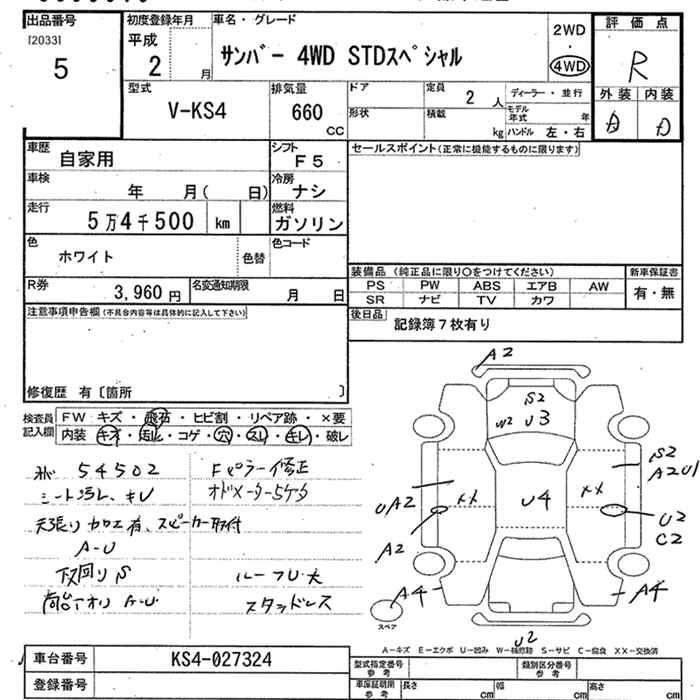 出品番号
[2033]
5
初度登録年月
平成
2 月
車名・グレード
サンバー 4WD STDスペシャル
2WD
・
4WD
評価点
R
外装 内装
型式
V-KS4
排気量
660
CC
ドア
形状
定員
2 人
積載
kg
ディーラー・並行
モデル年式 年
ハンドル 左・右
車歴
自家用
シフト
F5
車検
年 月( 日)
冷房
ナシ
走行
5万4千500 km
燃料
ガソリン
色
ホワイト
色替
色コード
R券
3,960円
名変通知期限
月 日
セールスポイント(正常に機能するものに限ります)
装備品(純正品に限り○をつけてください)
新車保証書
PS PW ABS エアB AW
有・無
SR ナビ TV カワ
後日品
記録簿7枚有り
注意事項申告欄(不具合内容等は具体的に記入して下さい)
修復歴 有〔箇所 〕
検査員記入欄
FW キズ・飛石・ヒビ割・リペア跡・×要
内装 キズ・汚レ・コゲ・穴・スレ・キレ・破レ
54502
Fピラー修正
シート汚レ、キU
オドメーター5ケタ
天張り加工有、スピーカー取付
A-U
下回りS
ルーフU大
荷台アオリ A-U
スタッドレス
A2
S2
W2 U3
S2
A2U1
UA2
XX
U4
XX
U2
C2
A2
A4
A4
スペア
U2
A-キズ E-エクボ U-凹み W-補修跡 S-サビ C-腐食 XX-交換済
車台番号
KS4-027324
登録番号
型式指定番号
参考
類別区分番号
参考
車庫証明用
参考
長さ cm
幅 cm
高さ cm